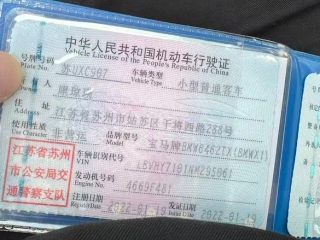 中华人民共和国机动车行驶证
Vehicle License of the People's Republic of China
号牌号码 苏UXC997 车辆类型 小型普通客车
Plate No. Vehicle Type
所有人
Owner
住址 江苏省苏州市姑苏区干将西路288号
Address
使用性质 非营运 品牌型号 宝马牌BMW6462TX(BMWX1)
Use Character Model
江苏省苏州市公安局交通警察支队
车辆识别代号
VIN
发动机号码 4669F481
Engine No.
注册日期 2022-01-19 发证日期 2022-01-19
Register Date Issue Date